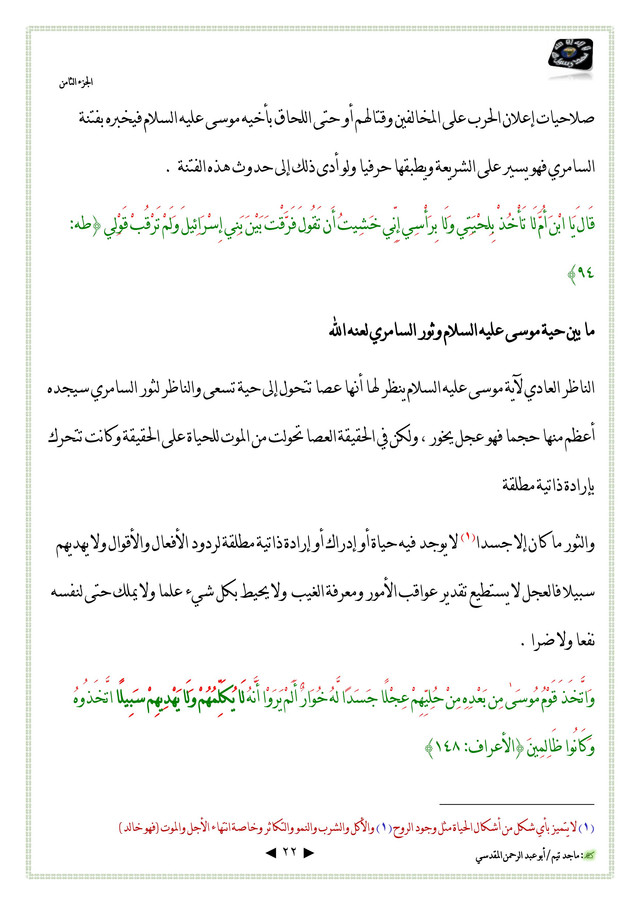 الجزء الثامن
صلاحيات إعلان الحرب على المخالفين وقتالهم أو حتى اللحاق بأخيه موسى عليه السلام فيخبره بفتنة
السامري فهو يسير على الشريعة ويطبقها حرفيا ولو أدى ذلك إلى حدوث هذه الفتنة .
قَالَ يَا ابْنَ أُمَّ لَا تَأْخُذْ بِلِحْيَتِي وَلَا بِرَأْسِي إِنِّي خَشِيتُ أَن تَقُولَ فَرَّقْتَ بَيْنَ بَنِي إِسْرَائِيلَ وَلَمْ تَرْقُبْ قَوْلِي ﴿طه:
٩٤﴾
ما بين حية موسى عليه السلام وثور السامري لعنه الله
الناظر العادي لآية موسى عليه السلام ينظر لها أنها عصا تتحول إلى حية تسعى والناظر لثور السامري سيجده
أعظم منها حجما فهو عجل يخور ، ولكن في الحقيقة العصا تحولت من الموت للحياة على الحقيقة وكانت تتحرك
بإرادة ذاتية مطلقة
والثور ما كان إلا جسدا (١) لا يوجد فيه حياة أو إدراك أو إرادة ذاتية مطلقة لردود الأفعال والأقوال ولا يهديهم
سبيلا فالعجل لا يستطيع تقدير عواقب الأمور ومعرفة الغيب ولا يحيط بكل شيء علما ولا يملك حتى لنفسه
نفعا ولا ضرا .
وَاتَّخَذَ قَوْمُ مُوسَىٰ مِن بَعْدِهِ مِنْ حُلِيِّهِمْ عِجْلًا جَسَدًا لَّهُ خُوَارٌ أَلَمْ يَرَوْا أَنَّهُ لَا يُكَلِّمُهُمْ وَلَا يَهْدِيهِمْ سَبِيلًا اتَّخَذُوهُ
وَكَانُوا ظَالِمِينَ ﴿الأعراف: ١٤٨﴾
(١) لا يتميز بأي شكل من أشكال الحياة مثل وجود الروح (١) والأكل والشرب والنمو والتكاثر وخاصة انتهاء الأجل والموت (فهو خالد)
◄ ٢٢ ►
: ماجد تيم / أبو عبد الرحمن المقدسي